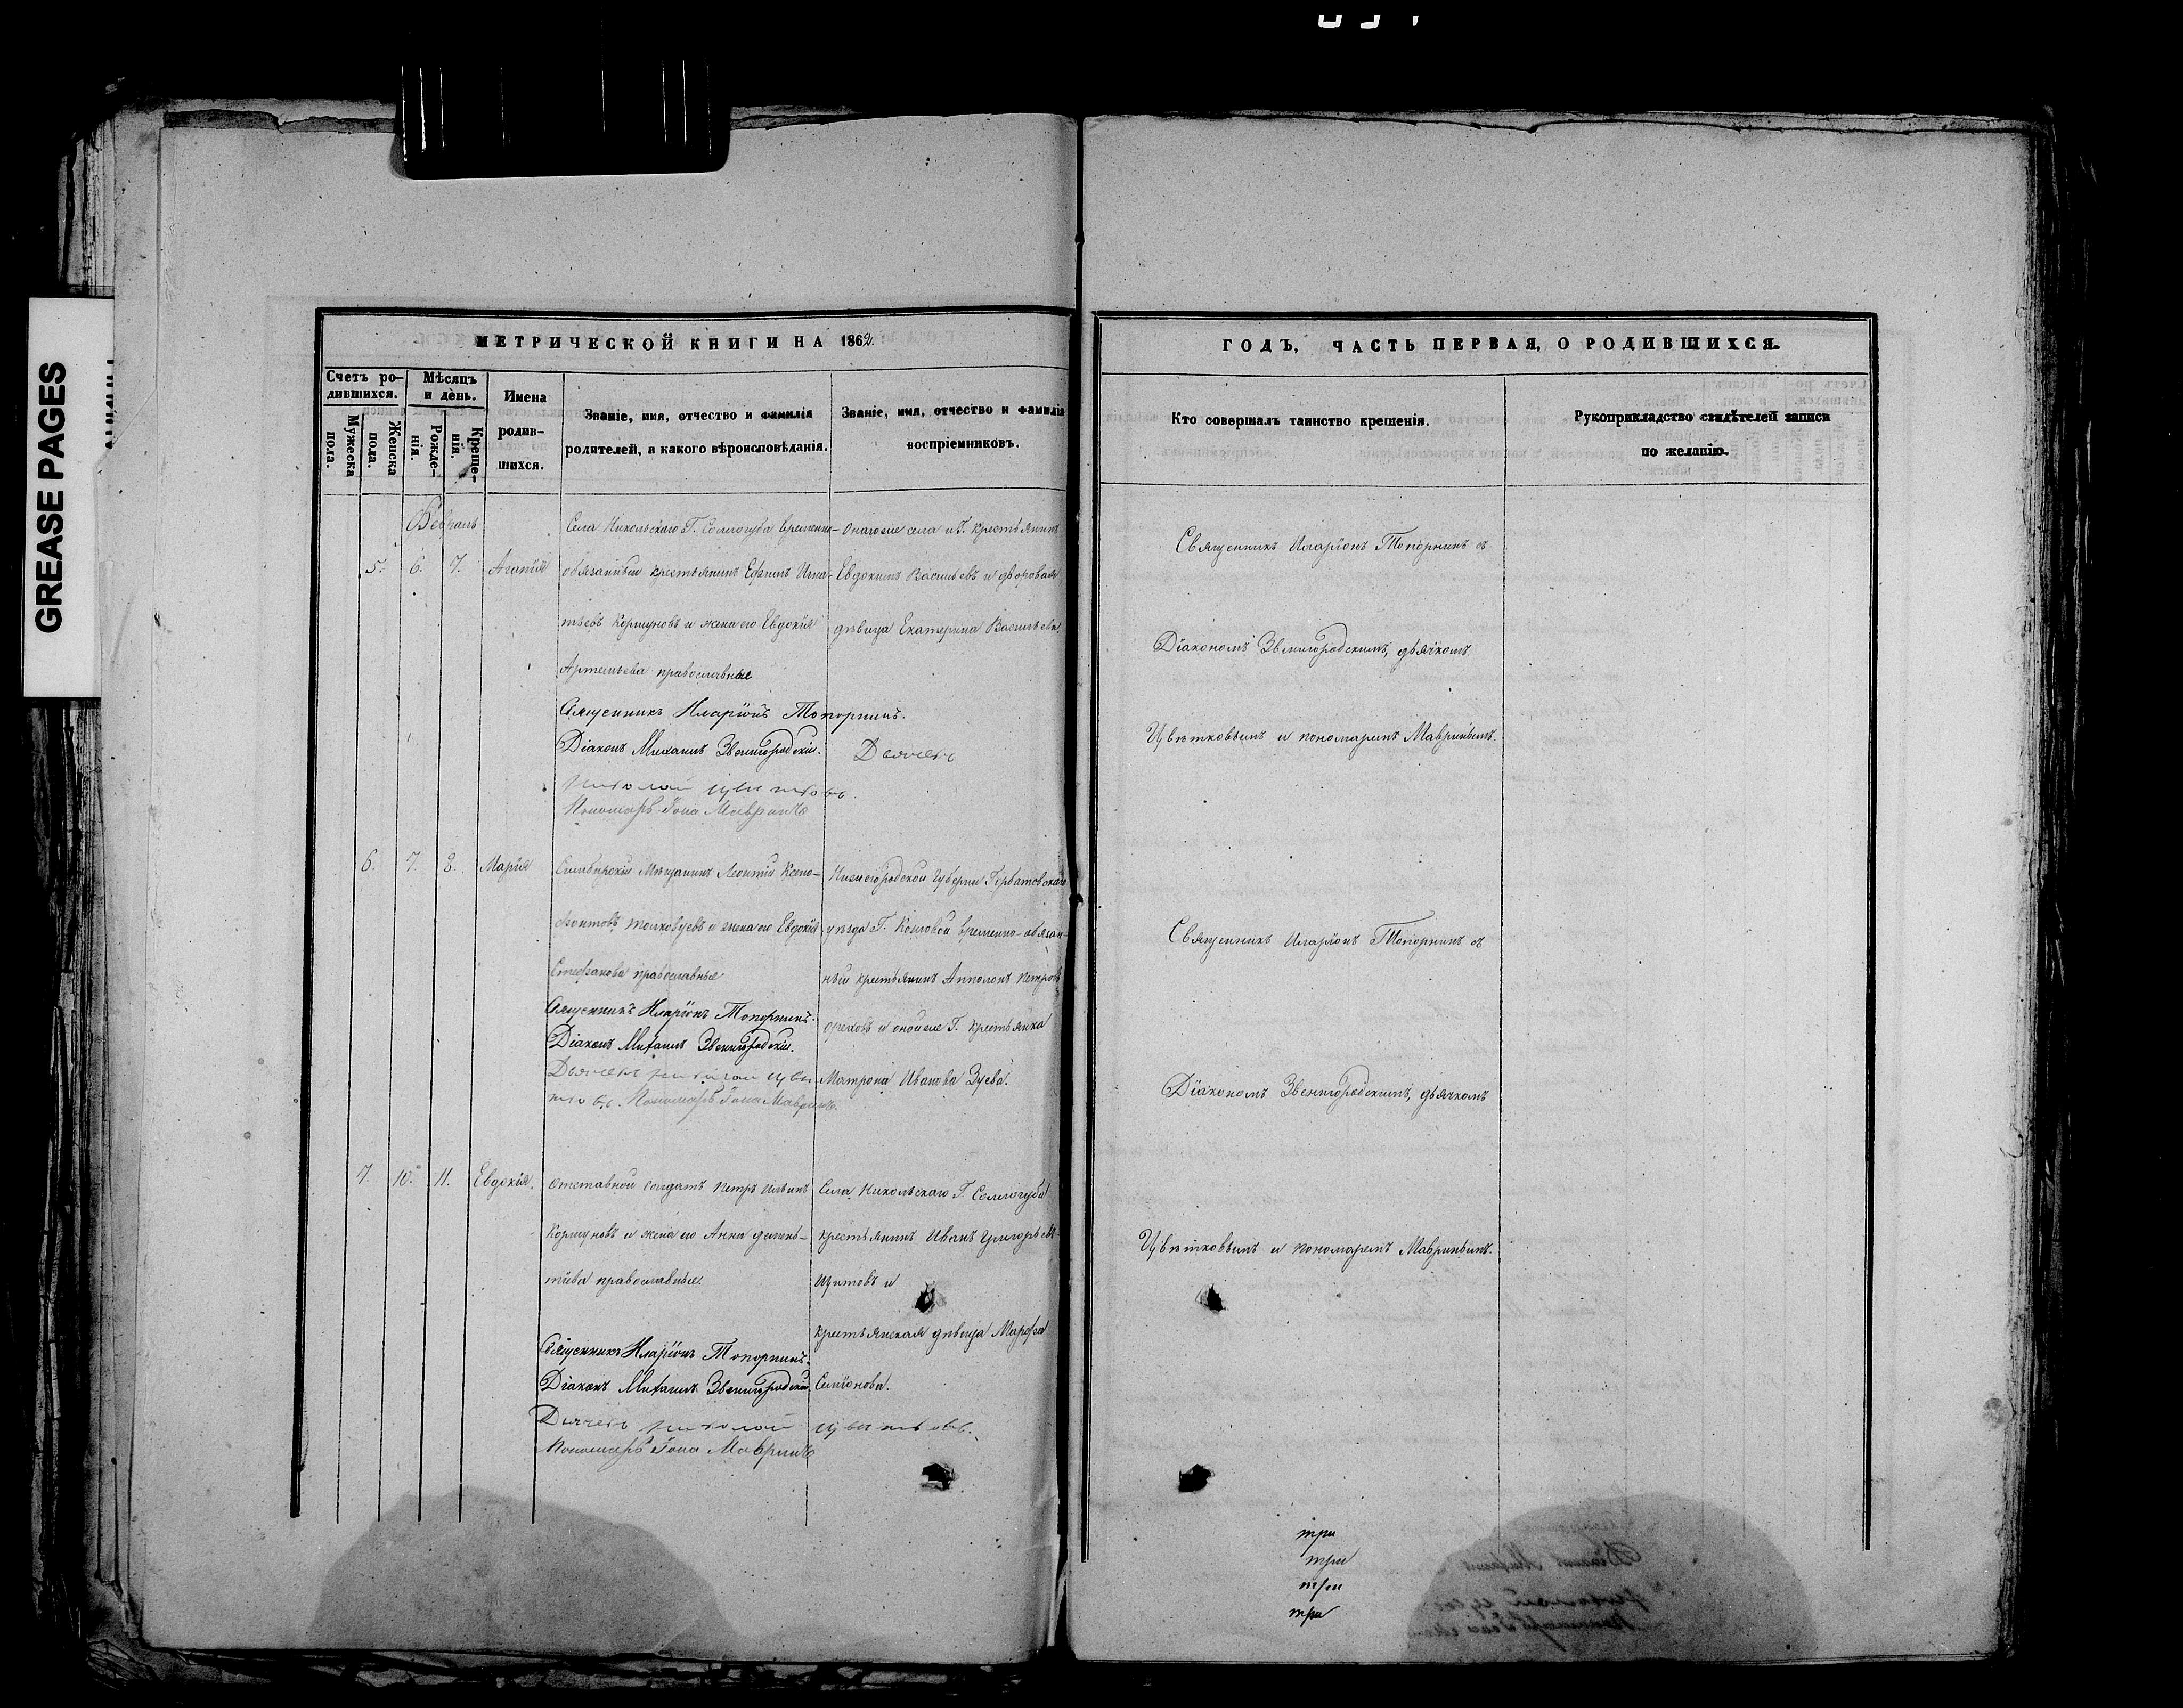 GREASE PAGES
МЕТРИЧЕСКОЙ КНИГИ НА 1862.
Счетъ ро-
дившихся.
Мужеска
пола.
Женска
пола.
Мѣсяцъ
и день.
Рожде-
нія.
Креще-
нія.
Имена
родив-
шихся.
Званіе, имя, отчество и фамилія
родителей, и какого вѣроисповѣданія.
Званіе, имя, отчество и фамилія
воспріемниковъ.
Февраль
5. 6. 7. Агапія
Села Никольскаго Г. Соллогуба временно-
обязанный крестьянинъ Ефимъ Игна-
тьевъ Коршуновъ и жена его Евдокія
Артемьева православные
Онагоже села и Г. крестьянинъ
Евдокимъ Васильевъ и дворовая
дѣвица Екатерина Васильева.
Священникъ Иларіонъ Топорнинъ.
Діаконъ Михаилъ Звенигородскій. Дьячекъ
Николай Цвѣтковъ.
Пономарь Іона Мавринъ
6. 7. 8. Марія
Симбирскій Мѣщанинъ Леонтій Ксено-
фонтовъ и жена его Евдокія
Стефанова православные
Нижегородской Губерніи Горбатовскаго
уѣзда Г. временно-обязан-
ный крестьянинъ Апполонъ Петровъ
Ореховъ и оной же Г. крестьянка
Матрона Иванова Зуева.
Священникъ Иларіонъ Топорнинъ.
Діаконъ Михаилъ Звенигородскій.
Дьячекъ Николай Цвѣ
тковъ. Пономарь Іона Мавринъ.
7. 10. 11. Евдокія.
Отставной солдатъ Петръ Ильинъ
Коршуновъ и жена его Анна
православные.
Села Никольскаго Г. Соллогуба
крестьянинъ Иванъ Григорьевъ
и
крестьянская дѣвица Марфа
Симіонова.
Священникъ Иларіонъ Топорнинъ.
Діаконъ Михаилъ Звенигородскій.
Дьячекъ Николай Цвѣтковъ.
Пономарь Іона Мавринъ
ГОДЪ, ЧАСТЬ ПЕРВАЯ, О РОДИВШИХСЯ.
Кто совершалъ таинство крещенія.
Рукоприкладство свидѣтелей записи
по желанію.
Священникъ Иларіонъ Топорнинъ съ
Діакономъ Звенигородскимъ, дьячкомъ
Цвѣтковымъ и пономаремъ Мавринымъ.
Священникъ Иларіонъ Топорнинъ съ
Діакономъ Звенигородскимъ, дьячкомъ
Цвѣтковымъ и пономаремъ Мавринымъ.
три
три
три
три